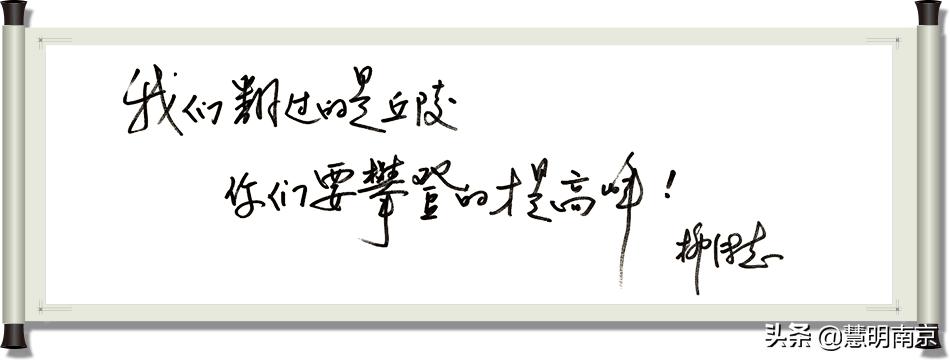 我们翻过的是丘陵
你们要攀登的才是高峰！
柳传志
头条 @慧明南京